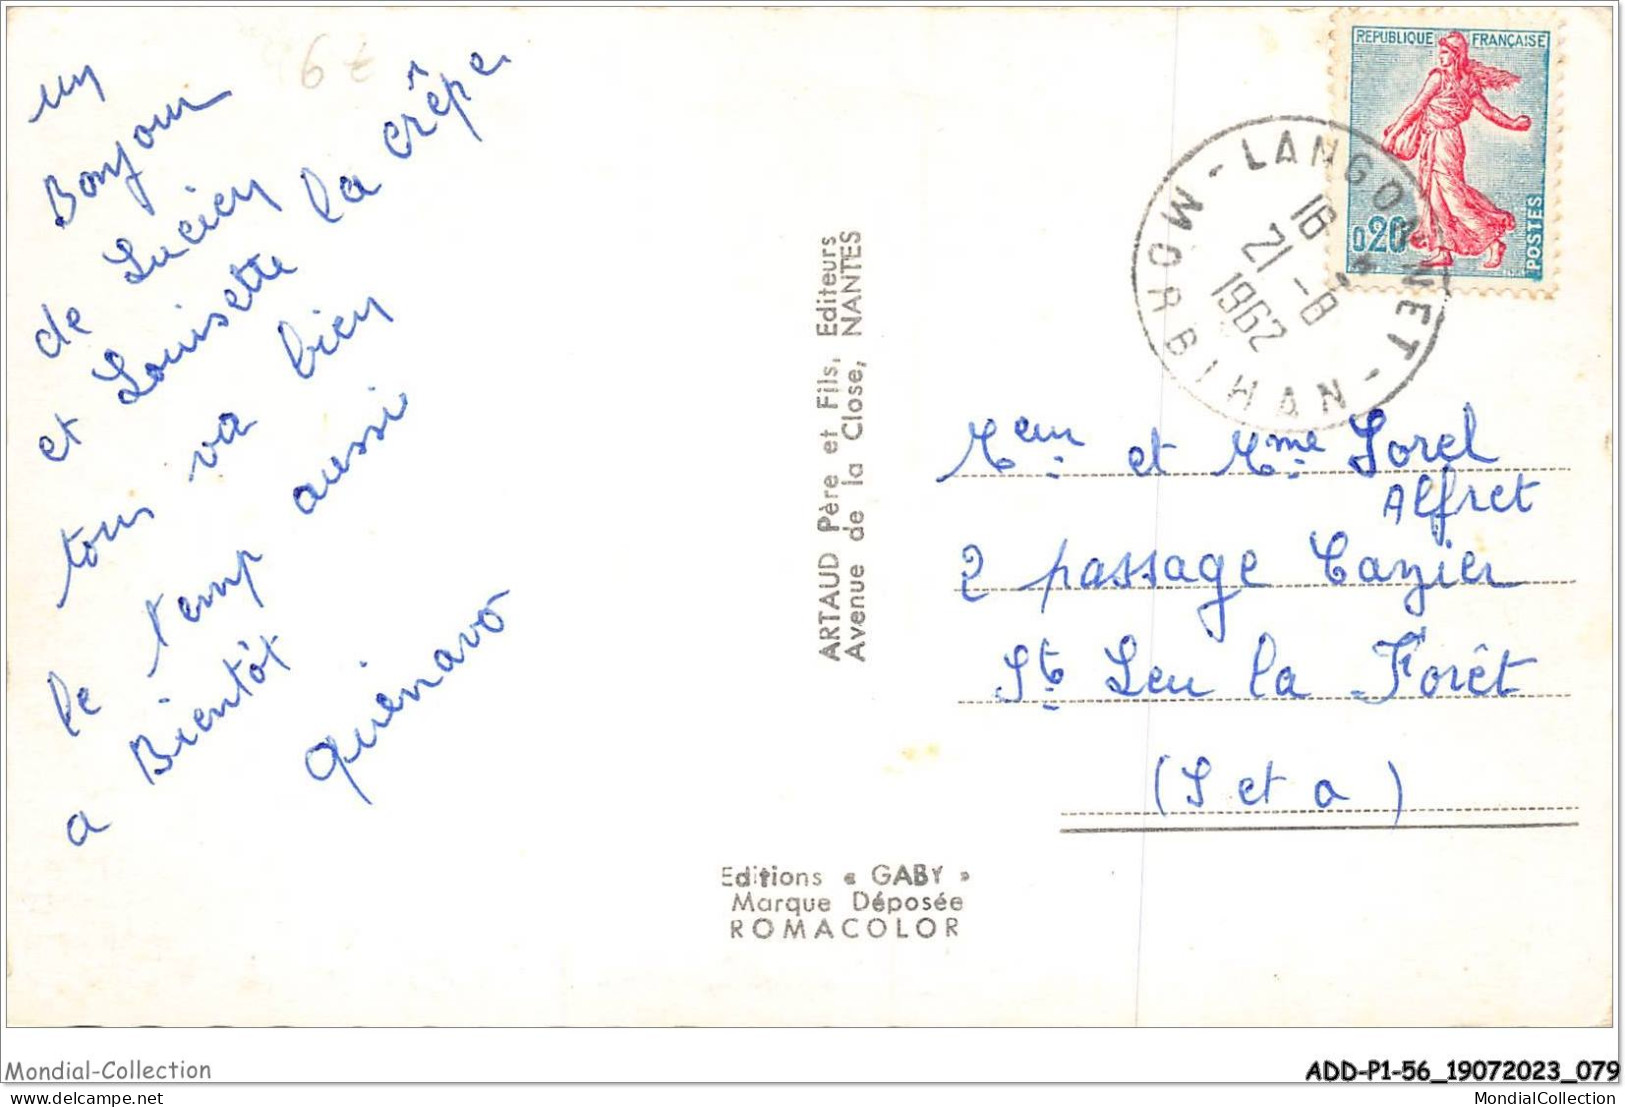 6€
un
Bonjour
de Lucien
et Louisette la crêpe
tous va bien
le temp aussi
a Bientôt
quénavo
ARTAUD Père et Fils, Editeurs
Avenue de la Close, NANTES
Editions « GABY »
Marque Déposée
ROMACOLOR
REPUBLIQUE FRANÇAISE
0,20
POSTES
LANGONNET - MORBIHAN -
16 H
21 - 8
1962
Meur et Mme Sorel
Alfret
2 passage Cazier
St Leu la Forêt
(S et o)
Mondial-Collection
ADD-P1-56_19072023_079
delcampe.net
MondialCollection